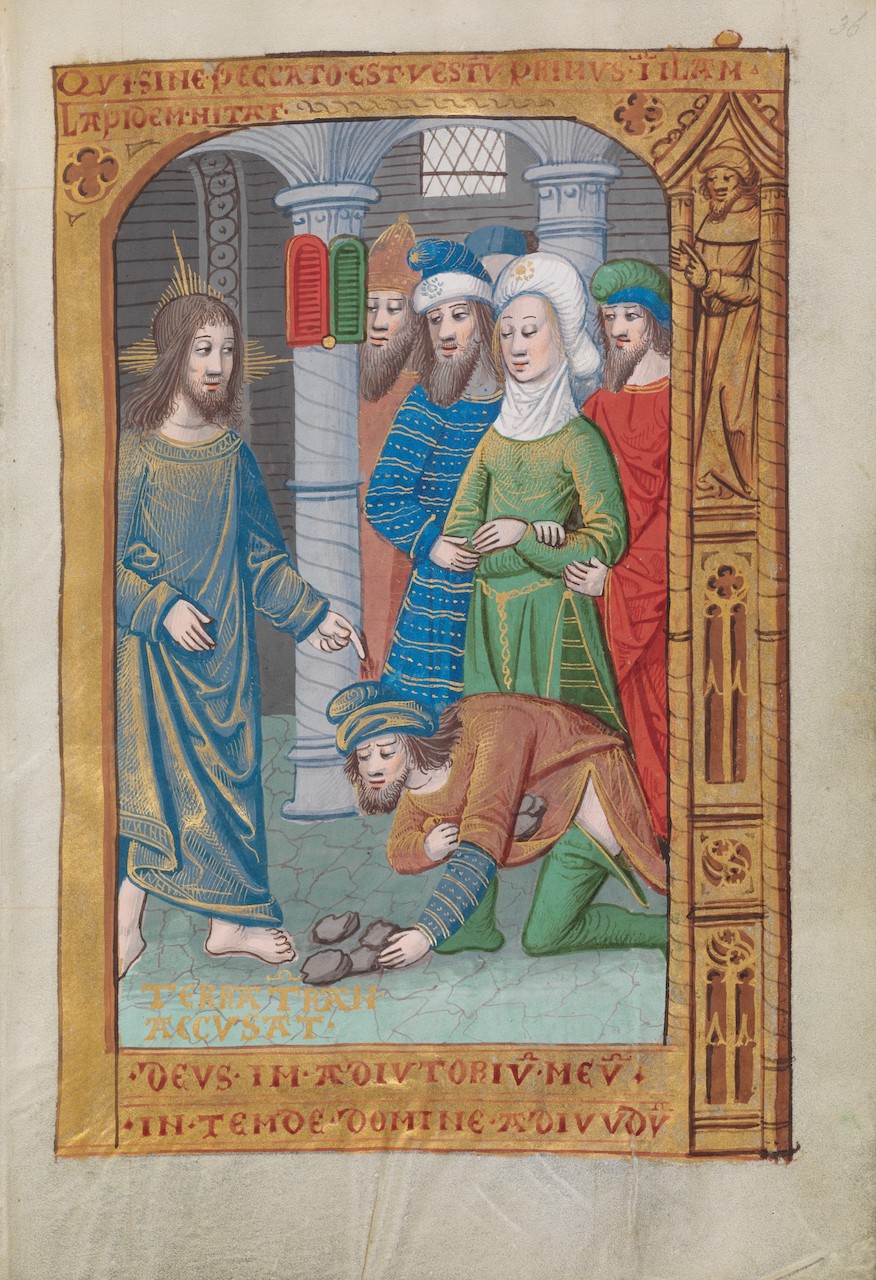 36
QVI·SINE·PECCATO·EST·VESTṼ·PRIMVS·ĨILAM·
LAPIDEM·MITAT·
TERRA TRAM
ACCVSAT·
·DEVS·IM·ADIVTORIV̄·MEV̄·
·IN·TEMDE·DOMINE·ADIVVDV̄